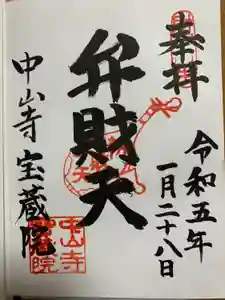 奉拝
令和五年
一月二十八日
弁財天
中山寺宝蔵院
中山寺
宝蔵院